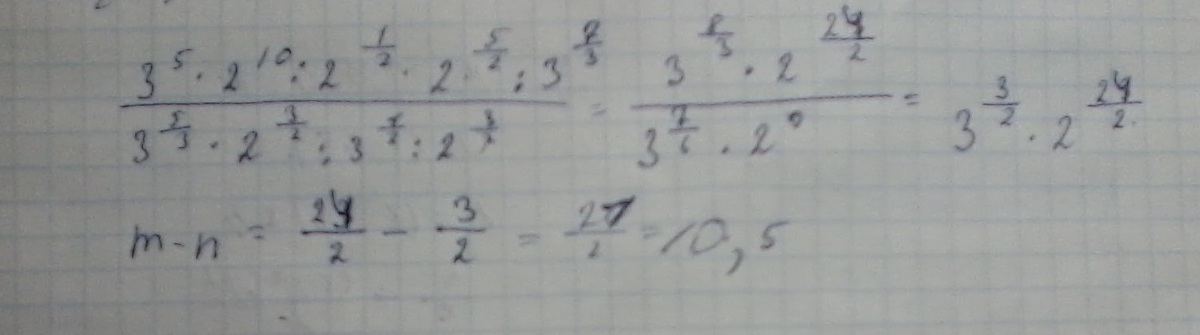 3^5 · 2^10 : 2^(1/2) · 2^(5/2) : 3^(7/3) / 3^(5/3) · 2^(3/2) : 3^(1/2) : 2^(3/2) = 3^(8/3) · 2^(24/2) / 3^(7/6) · 2^0 = 3^(3/2) · 2^(24/2)
m-n = 24/2 - 3/2 = 21/2 = 10,5